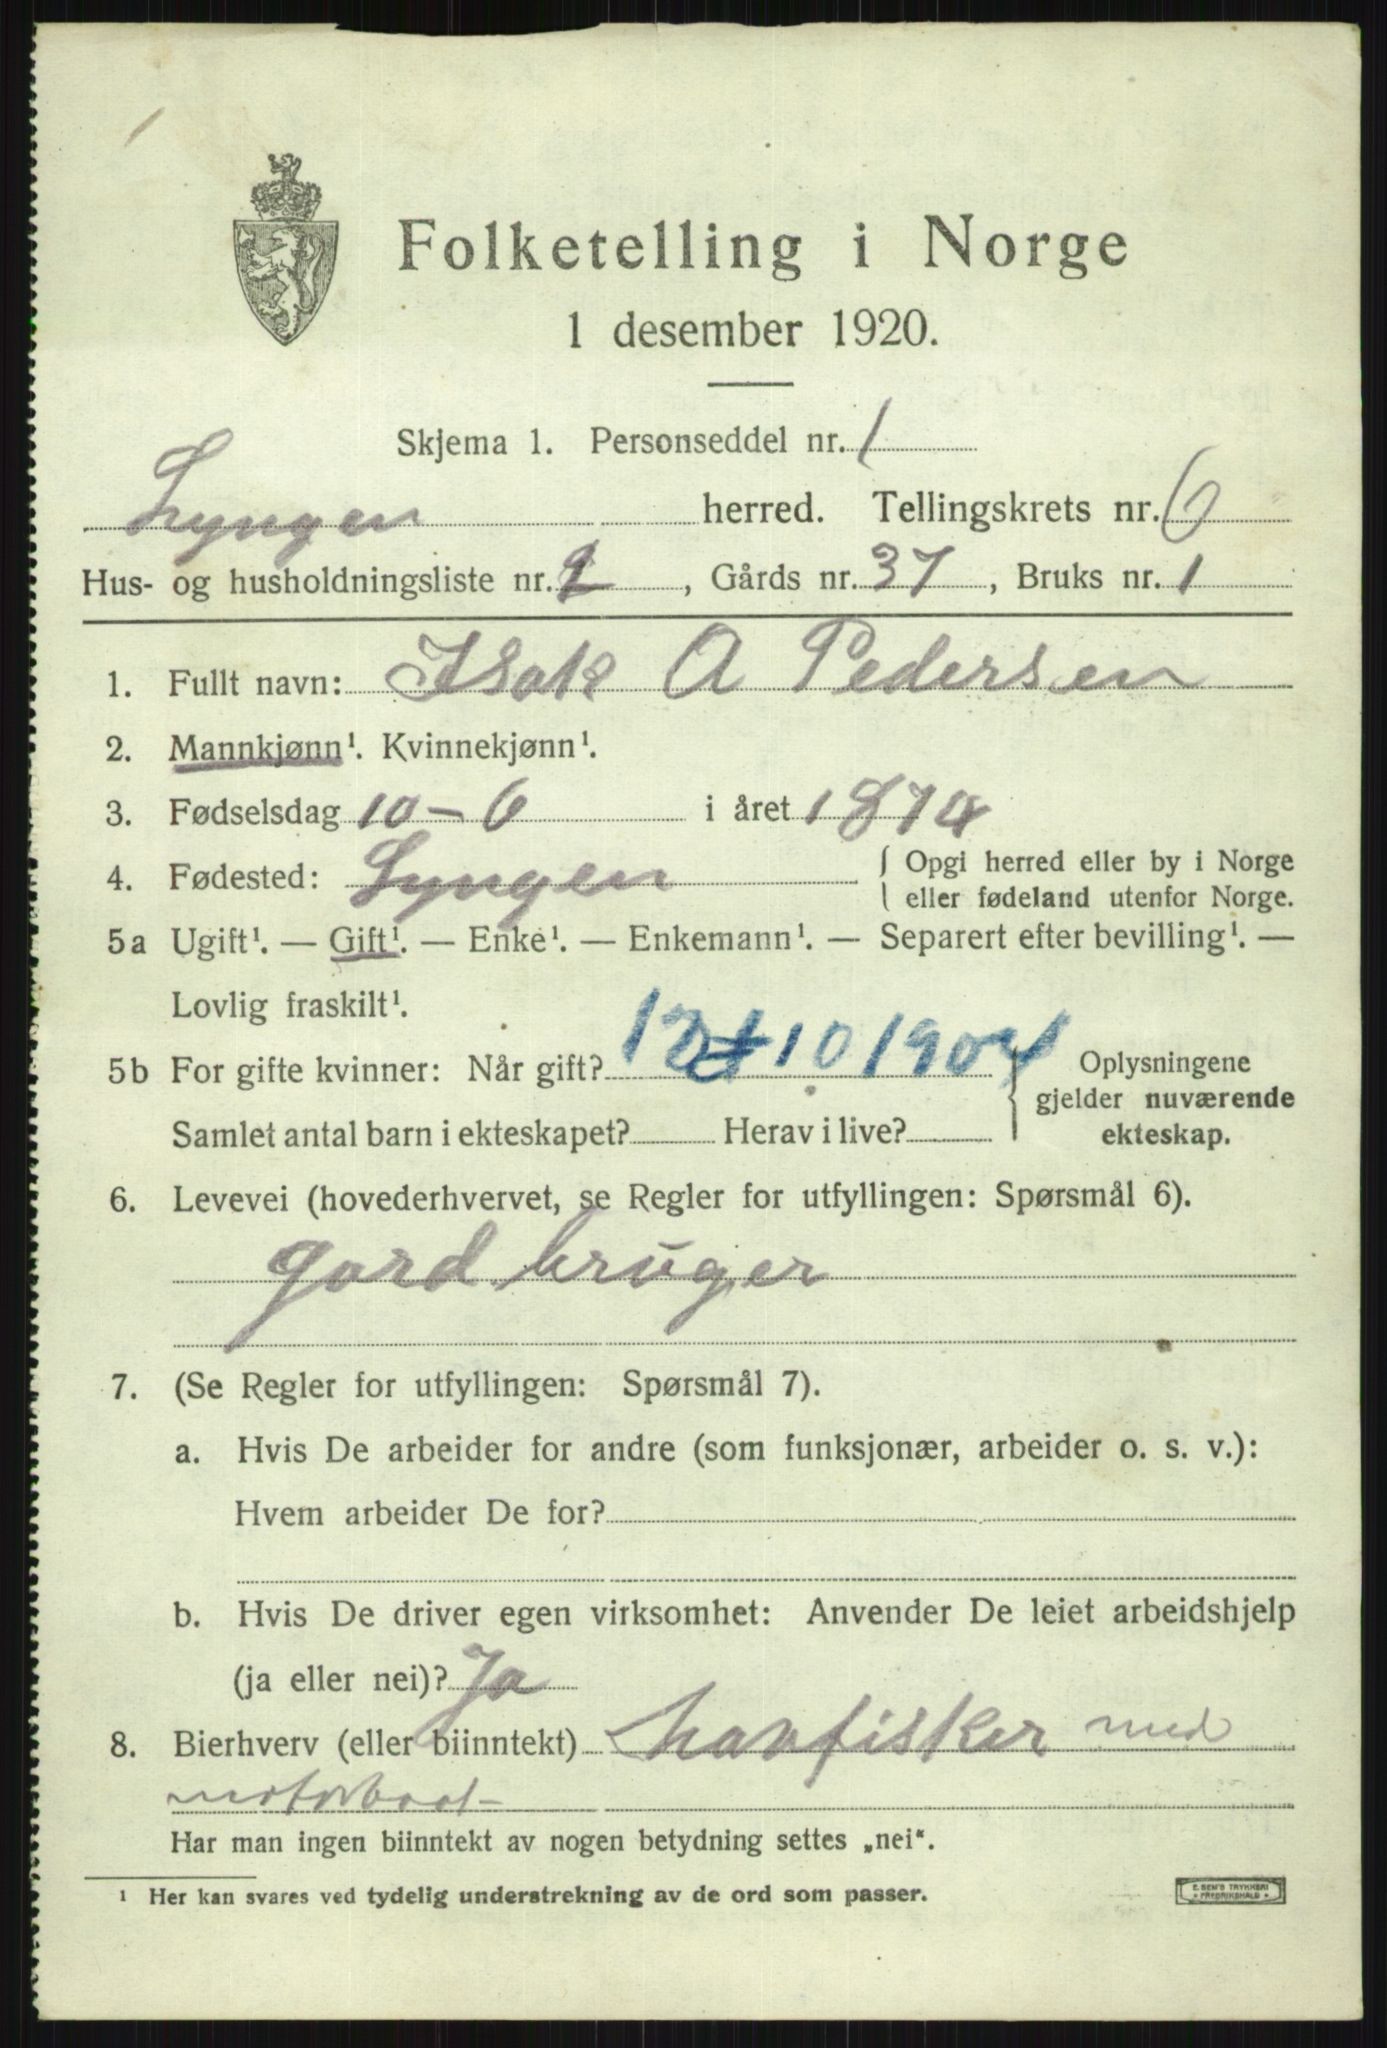 Folketelling i Norge
1 desember 1920.
Skjema 1. Personseddel nr. 1
Lyngen herred. Tellingskrets nr. 6
Hus- og husholdningsliste nr. 2, Gårds nr. 37, Bruks nr. 1
1. Fullt navn: Isak A Pedersen
2. Mannkjønn¹. Kvinnekjønn¹.
3. Fødselsdag 10-6 i året 1874
4. Fødested: Lyngen { Opgi herred eller by i Norge
eller fødeland utenfor Norge.
5a Ugift¹. — Gift¹. — Enke¹. — Enkemann¹. — Separert efter bevilling¹. —
Lovlig fraskilt¹.
5b For gifte kvinner: Når gift? 10 1904 } Oplysningene
gjelder nuværende
Samlet antal barn i ekteskapet? Herav i live? ekteskap.
6. Levevei (hovederhvervet, se Regler for utfyllingen: Spørsmål 6).
gard bruger
7. (Se Regler for utfyllingen: Spørsmål 7).
a. Hvis De arbeider for andre (som funksjonær, arbeider o. s. v.):
Hvem arbeider De for?
b. Hvis De driver egen virksomhet: Anvender De leiet arbeidshjelp
(ja eller nei)? Ja
8. Bierhverv (eller biinntekt) havfisker med
motorbaat
Har man ingen biinntekt av nogen betydning settes „nei“.
¹ Her kan svares ved tydelig understrekning av de ord som passer.
E. SEM'S TRYKKERI
FREDRIKSHALD